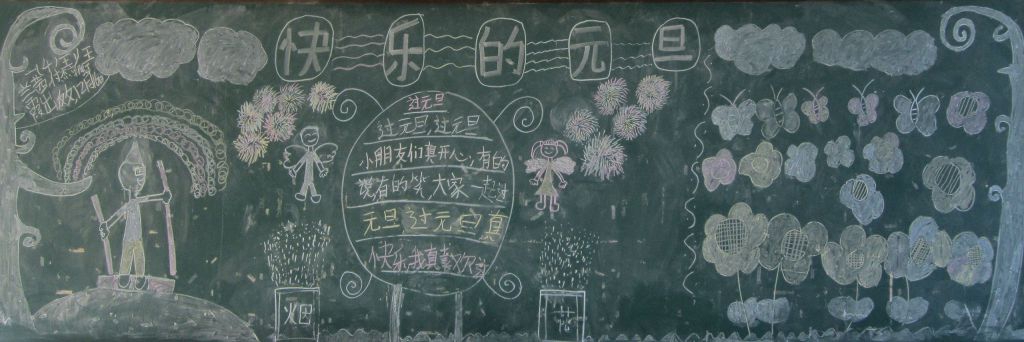 快乐的元旦
过元旦
过元旦,过元旦
小朋友们真开心,有的
有的笑,大家一起过
元旦过元旦真
快乐我真喜欢过
烟
花